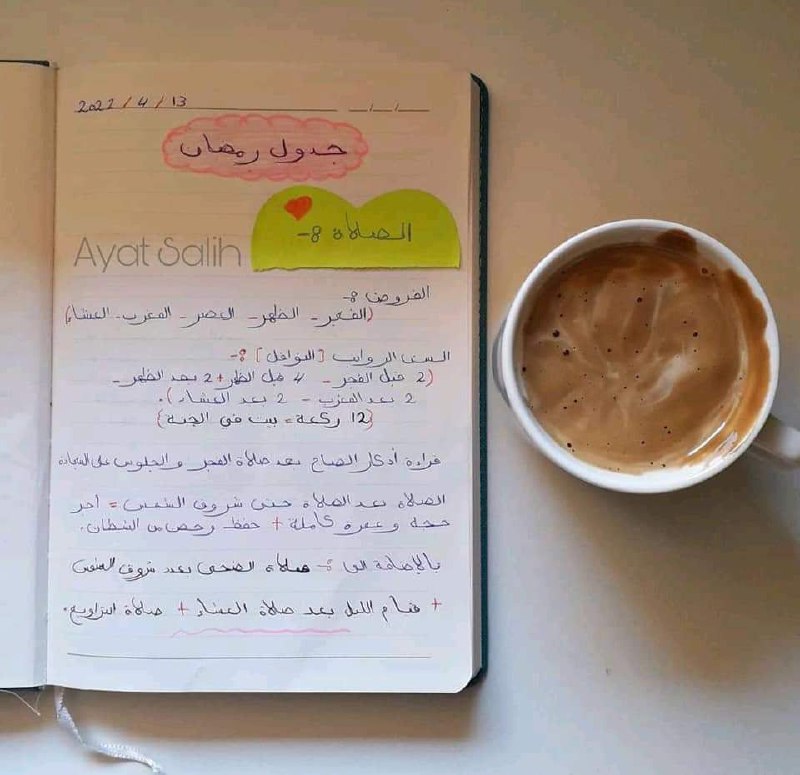 2022 / 4 / 13
جدول رمضان
الصلاة :-
Ayat Salih
الفروض :-
(الفجر - الظهر - العصر - المغرب - العشاء)
السنن الرواتب [النوافل] :-
(2 قبل الفجر - 4 قبل الظهر + 2 بعد الظهر -
2 بعد المغرب - 2 بعد العشاء).
{12 ركعة = بيت في الجنة}
قراءة أذكار الصباح بعد صلاة الفجر والجلوس على السجادة
الصلاة بعد الصلاة حتى شروق الشمس = أجر
حجة وعمرة كاملة + حفظ وحصن من الشيطان.
بالإضافة الى :- صلاة الضحى بعد شروق الشمس
+ قيام الليل بعد صلاة العشاء + صلاة التراويح.